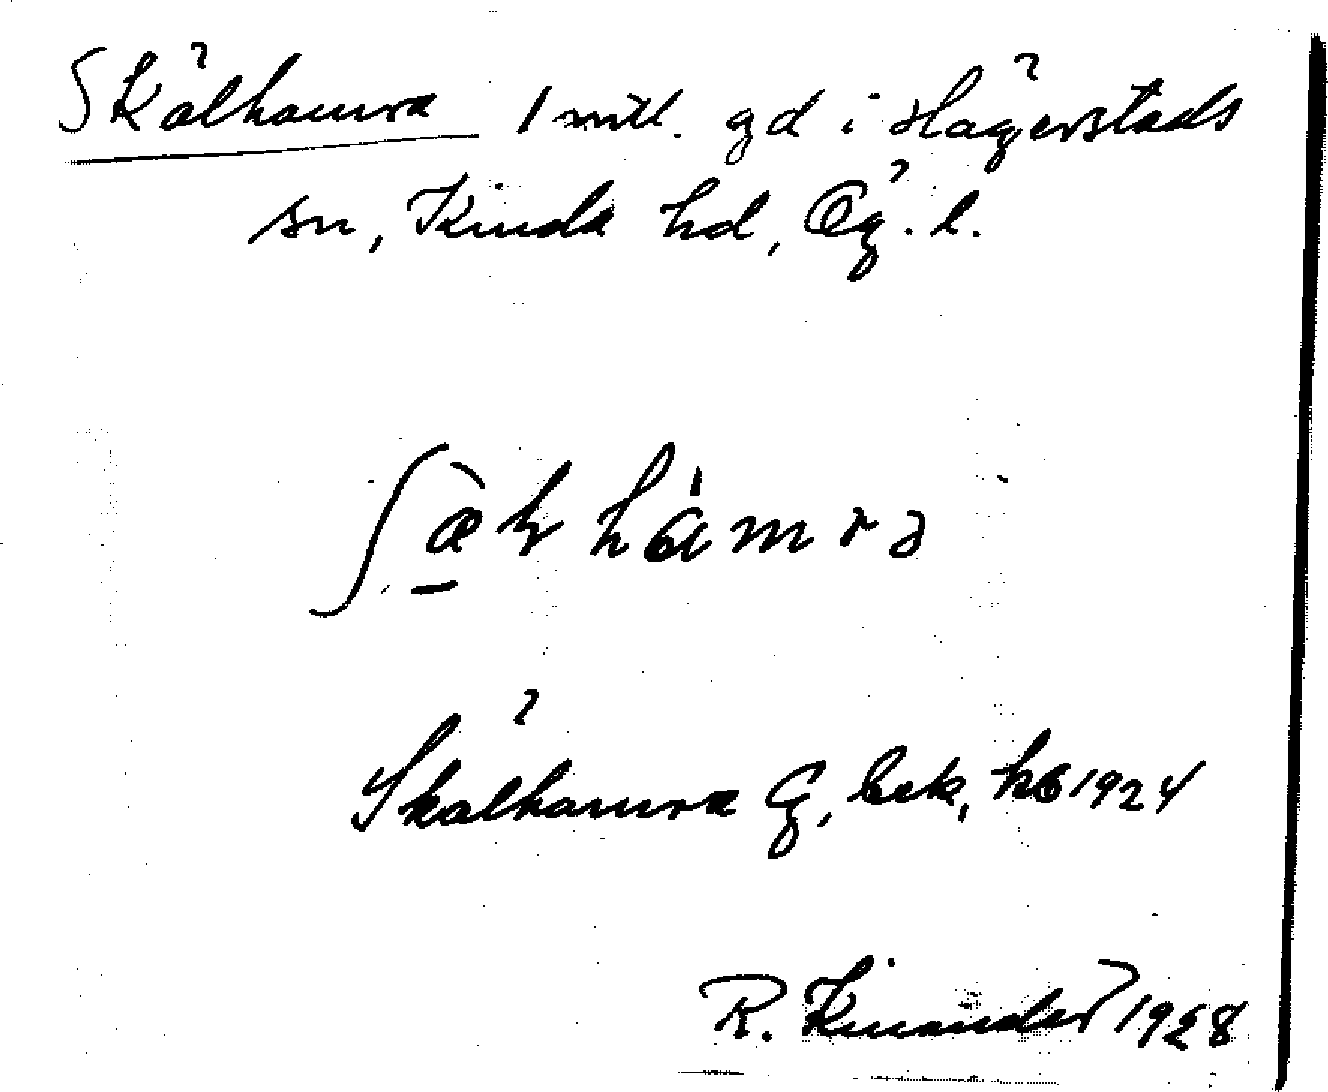 Skälhamra 1 mtl. gd i Hägerstads
sn, Kinda hd, Ög. l.
ʃæ̱̀ɽhámrə
Skälhamra G, bek, kb 1924
R. Kinander 1928